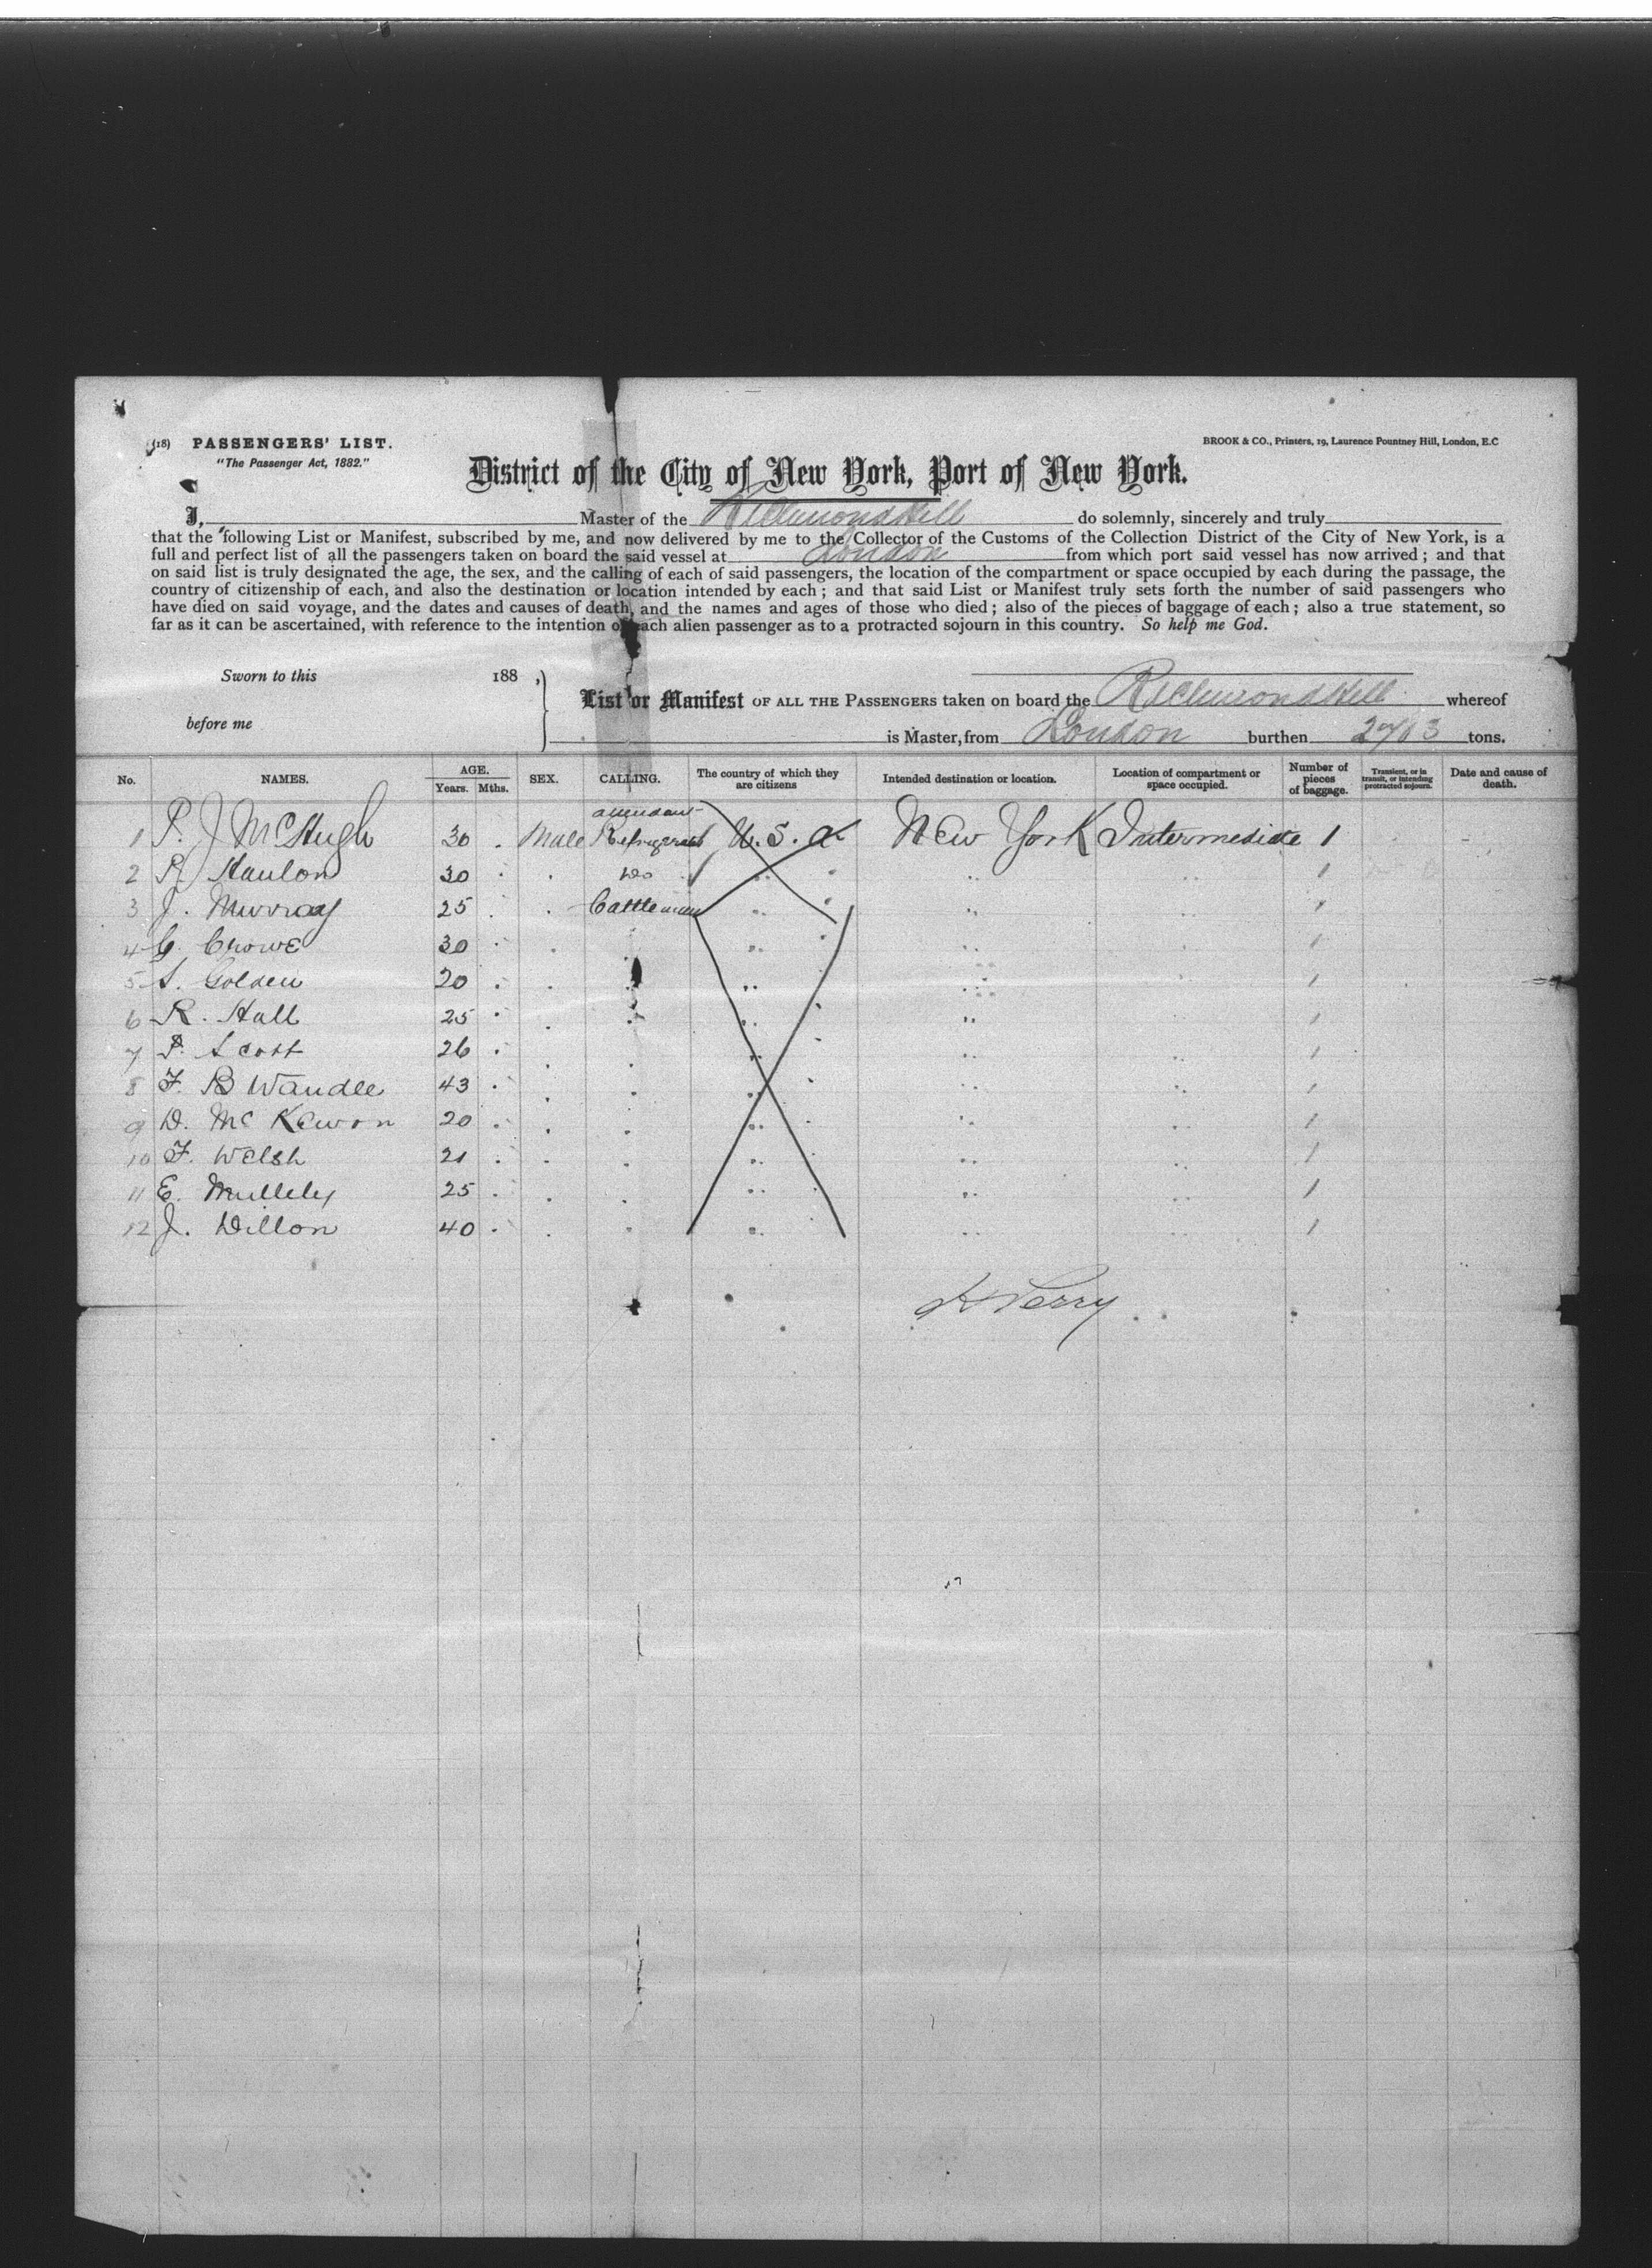 (18) PASSENGERS' LIST.
"The Passenger Act, 1882."
BROOK & CO., Printers, 19, Laurence Pountney Hill, London, E.C
District of the City of New York, Port of New York.
I, Master of the Richmond Hill do solemnly, sincerely and truly
that the following List or Manifest, subscribed by me, and now delivered by me to the Collector of the Customs of the Collection District of the City of New York, is a
full and perfect list of all the passengers taken on board the said vessel at London from which port said vessel has now arrived; and that
on said list is truly designated the age, the sex, and the calling of each of said passengers, the location of the compartment or space occupied by each during the passage, the
country of citizenship of each, and also the destination or location intended by each; and that said List or Manifest truly sets forth the number of said passengers who
have died on said voyage, and the dates and causes of death, and the names and ages of those who died; also of the pieces of baggage of each; also a true statement, so
far as it can be ascertained, with reference to the intention of each alien passenger as to a protracted sojourn in this country. So help me God.
Sworn to this 188 ,
before me
List or Manifest OF ALL THE PASSENGERS taken on board the Richmond Hill whereof
is Master, from London burthen tons.
No. NAMES. AGE. Years. Mths. SEX. CALLING. The country of which they are citizens Intended destination or location. Location of compartment or space occupied. Number of pieces of baggage. Transient, or in transit, or intending protracted sojourn. Date and cause of death.
attendant
1 P. J McHugh 30 . Male U. S. A New York Intermediate 1
2 Hanlon 30 . . Do .. .. .. 1
3 J. Murray 25 . . Cattleman .. .. 1
4 C. Crowe 30 . . . .. .. .. 1
5 S. Golden 20 . . . .. .. .. 1
6 R. Hall 25 . . . .. .. 1
7 P. Scott 26 . . . .. .. .. 1
8 F. B Wandle 43 . . . .. .. .. 1
9 D. Mc Kewon 20 . . . .. .. .. 1
10 F. Welsh 21 . . . .. .. .. 1
11 E. Mullely 25 . . . .. .. .. 1
12 J. Dillon 40 . . . .. .. .. 1
Perry